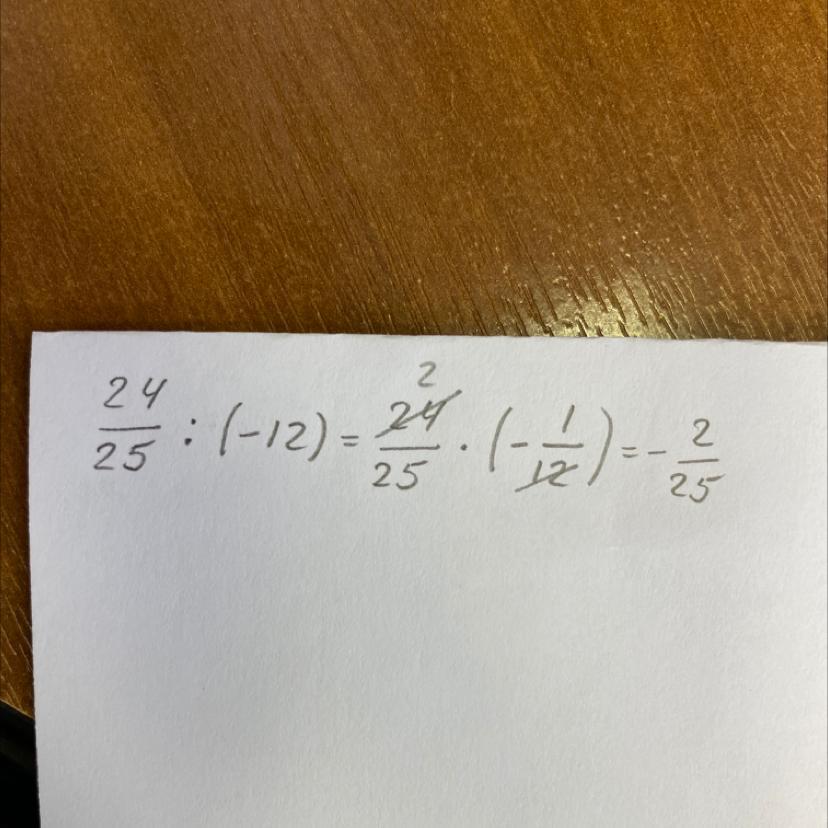 24/25 : (-12) = 24/25 · (-1/12) = -2/25
2